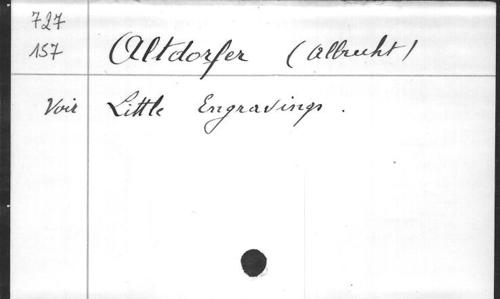 727
157 Altdorfer (Albrecht)
Voir Little Engravings.